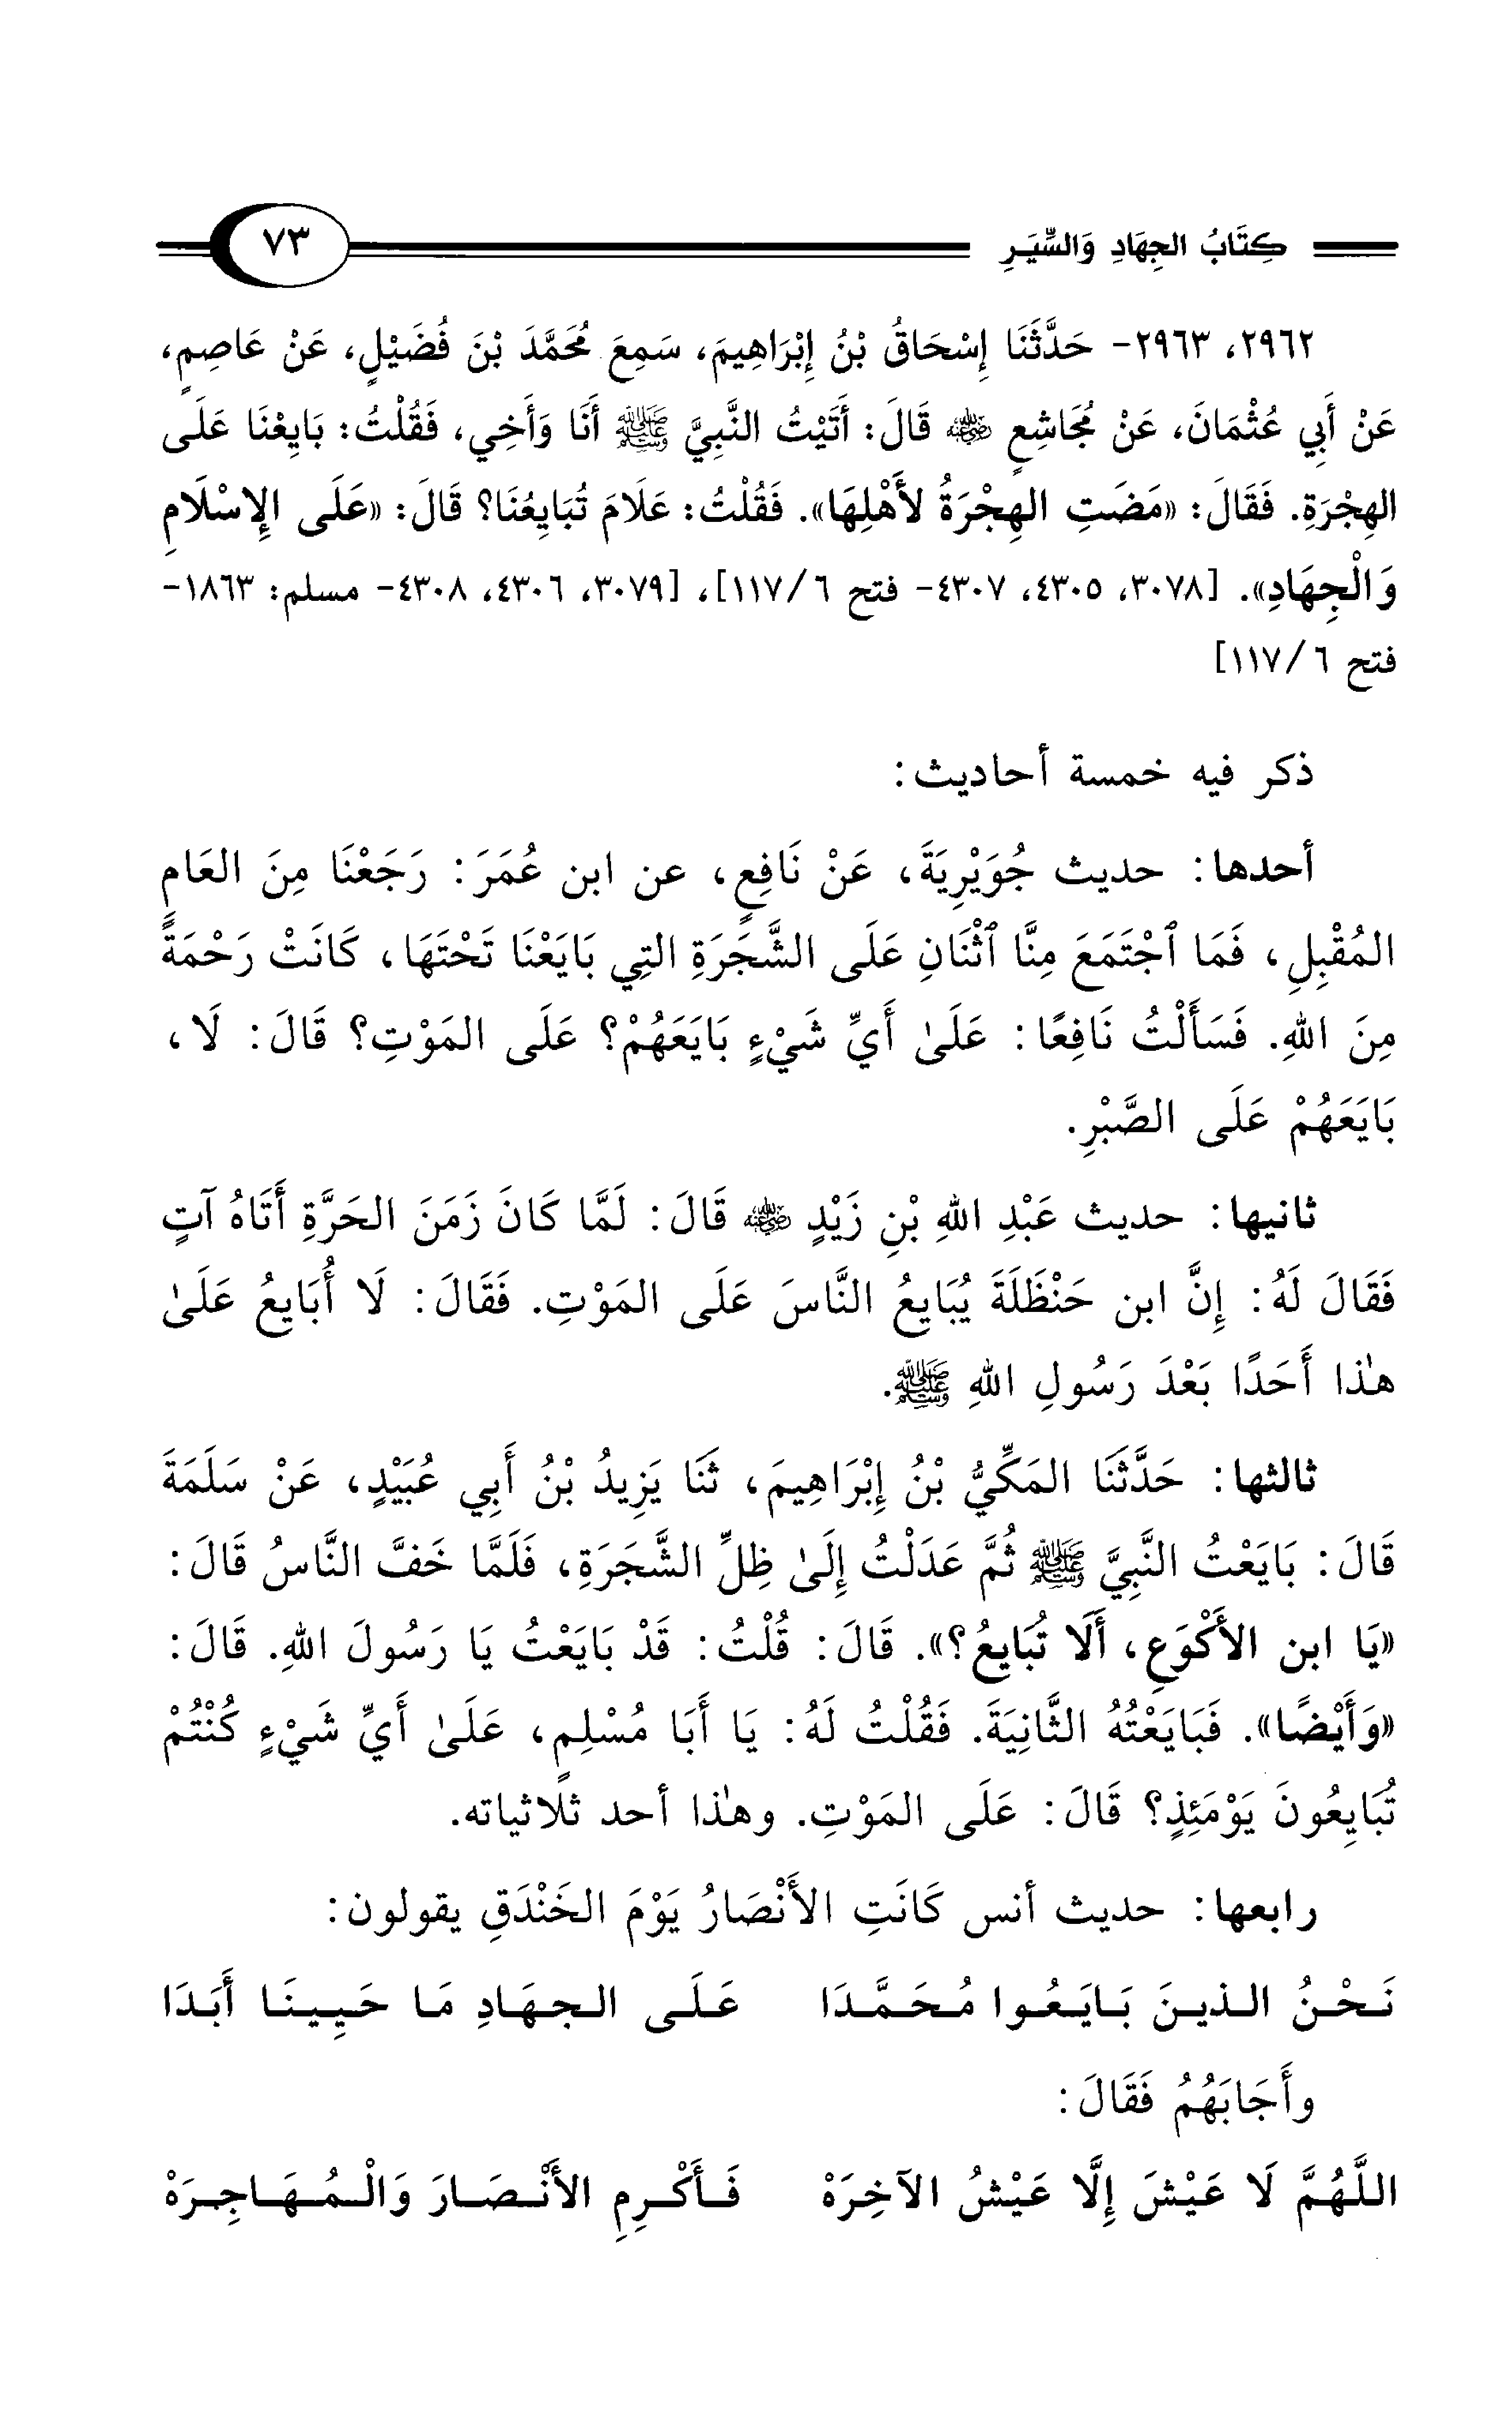 كِتَابُ الجِهَادِ وَالسِّيَرِ ٧٣
٢٩٦٢، ٢٩٦٣- حَدَّثَنَا إِسْحَاقُ بْنُ إِبْرَاهِيمَ، سَمِعَ مُحَمَّدَ بْنَ فُضَيْلٍ، عَنْ عَاصِمٍ،
عَنْ أَبِي عُثْمَانَ، عَنْ مُجَاشِعٍ رضي الله عنه قَالَ: أَتَيْتُ النَّبِيَّ ﷺ أَنَا وَأَخِي، فَقُلْتُ: بَايِعْنَا عَلَى
الهِجْرَةِ. فَقَالَ: «مَضَتِ الهِجْرَةُ لأَهْلِهَا». فَقُلْتُ: عَلَامَ تُبَايِعُنَا؟ قَالَ: «عَلَى الإِسْلَامِ
وَالْجِهَادِ». [٣٠٧٨، ٤٣٠٥، ٤٣٠٧- فتح ٦/ ١١٧]، [٣٠٧٩، ٤٣٠٦، ٤٣٠٨- مسلم: ١٨٦٣-
فتح ٦/ ١١٧]
ذكر فيه خمسة أحاديث:
أحدها: حديث جُوَيْرِيَةَ، عَنْ نَافِعٍ، عن ابن عُمَرَ: رَجَعْنَا مِنَ العَامِ
المُقْبِلِ، فَمَا ٱجْتَمَعَ مِنَّا ٱثْنَانِ عَلَى الشَّجَرَةِ التِي بَايَعْنَا تَحْتَهَا، كَانَتْ رَحْمَةً
مِنَ اللهِ. فَسَأَلْتُ نَافِعًا: عَلَىٰ أَيِّ شَيْءٍ بَايَعَهُمْ؟ عَلَى المَوْتِ؟ قَالَ: لَا،
بَايَعَهُمْ عَلَى الصَّبْرِ.
ثانيها: حديث عَبْدِ اللهِ بْنِ زَيْدٍ رضي الله عنه قَالَ: لَمَّا كَانَ زَمَنَ الحَرَّةِ أَتَاهُ آتٍ
فَقَالَ لَهُ: إِنَّ ابن حَنْظَلَةَ يُبَايِعُ النَّاسَ عَلَى المَوْتِ. فَقَالَ: لَا أُبَايِعُ عَلَىٰ
هٰذا أَحَدًا بَعْدَ رَسُولِ اللهِ ﷺ.
ثالثها: حَدَّثَنَا المَكِّيُّ بْنُ إِبْرَاهِيمَ، ثَنَا يَزِيدُ بْنُ أَبِي عُبَيْدٍ، عَنْ سَلَمَةَ
قَالَ: بَايَعْتُ النَّبِيَّ ﷺ ثُمَّ عَدَلْتُ إِلَىٰ ظِلِّ الشَّجَرَةِ، فَلَمَّا خَفَّ النَّاسُ قَالَ:
«يَا ابن الأَكْوَعِ، أَلَا تُبَايِعُ؟». قَالَ: قُلْتُ: قَدْ بَايَعْتُ يَا رَسُولَ اللهِ. قَالَ:
«وَأَيْضًا». فَبَايَعْتُهُ الثَّانِيَةَ. فَقُلْتُ لَهُ: يَا أَبَا مُسْلِمٍ، عَلَىٰ أَيِّ شَيْءٍ كُنْتُمْ
تُبَايِعُونَ يَوْمَئِذٍ؟ قَالَ: عَلَى المَوْتِ. وهٰذا أحد ثلاثياته.
رابعها: حديث أنس كَانَتِ الأَنْصَارُ يَوْمَ الخَنْدَقِ يقولون:
نَحْنُ الذينَ بَايَعُوا مُحَمَّدَا عَلَى الجهَادِ مَا حَيِينَا أَبَدَا
وأَجَابَهُمُ فَقَالَ:
اللَّهُمَّ لَا عَيْشَ إِلَّا عَيْشُ الآخِرَهْ فَأَكْرِمِ الأَنْصَارَ وَالْمُهَاجِرَهْ